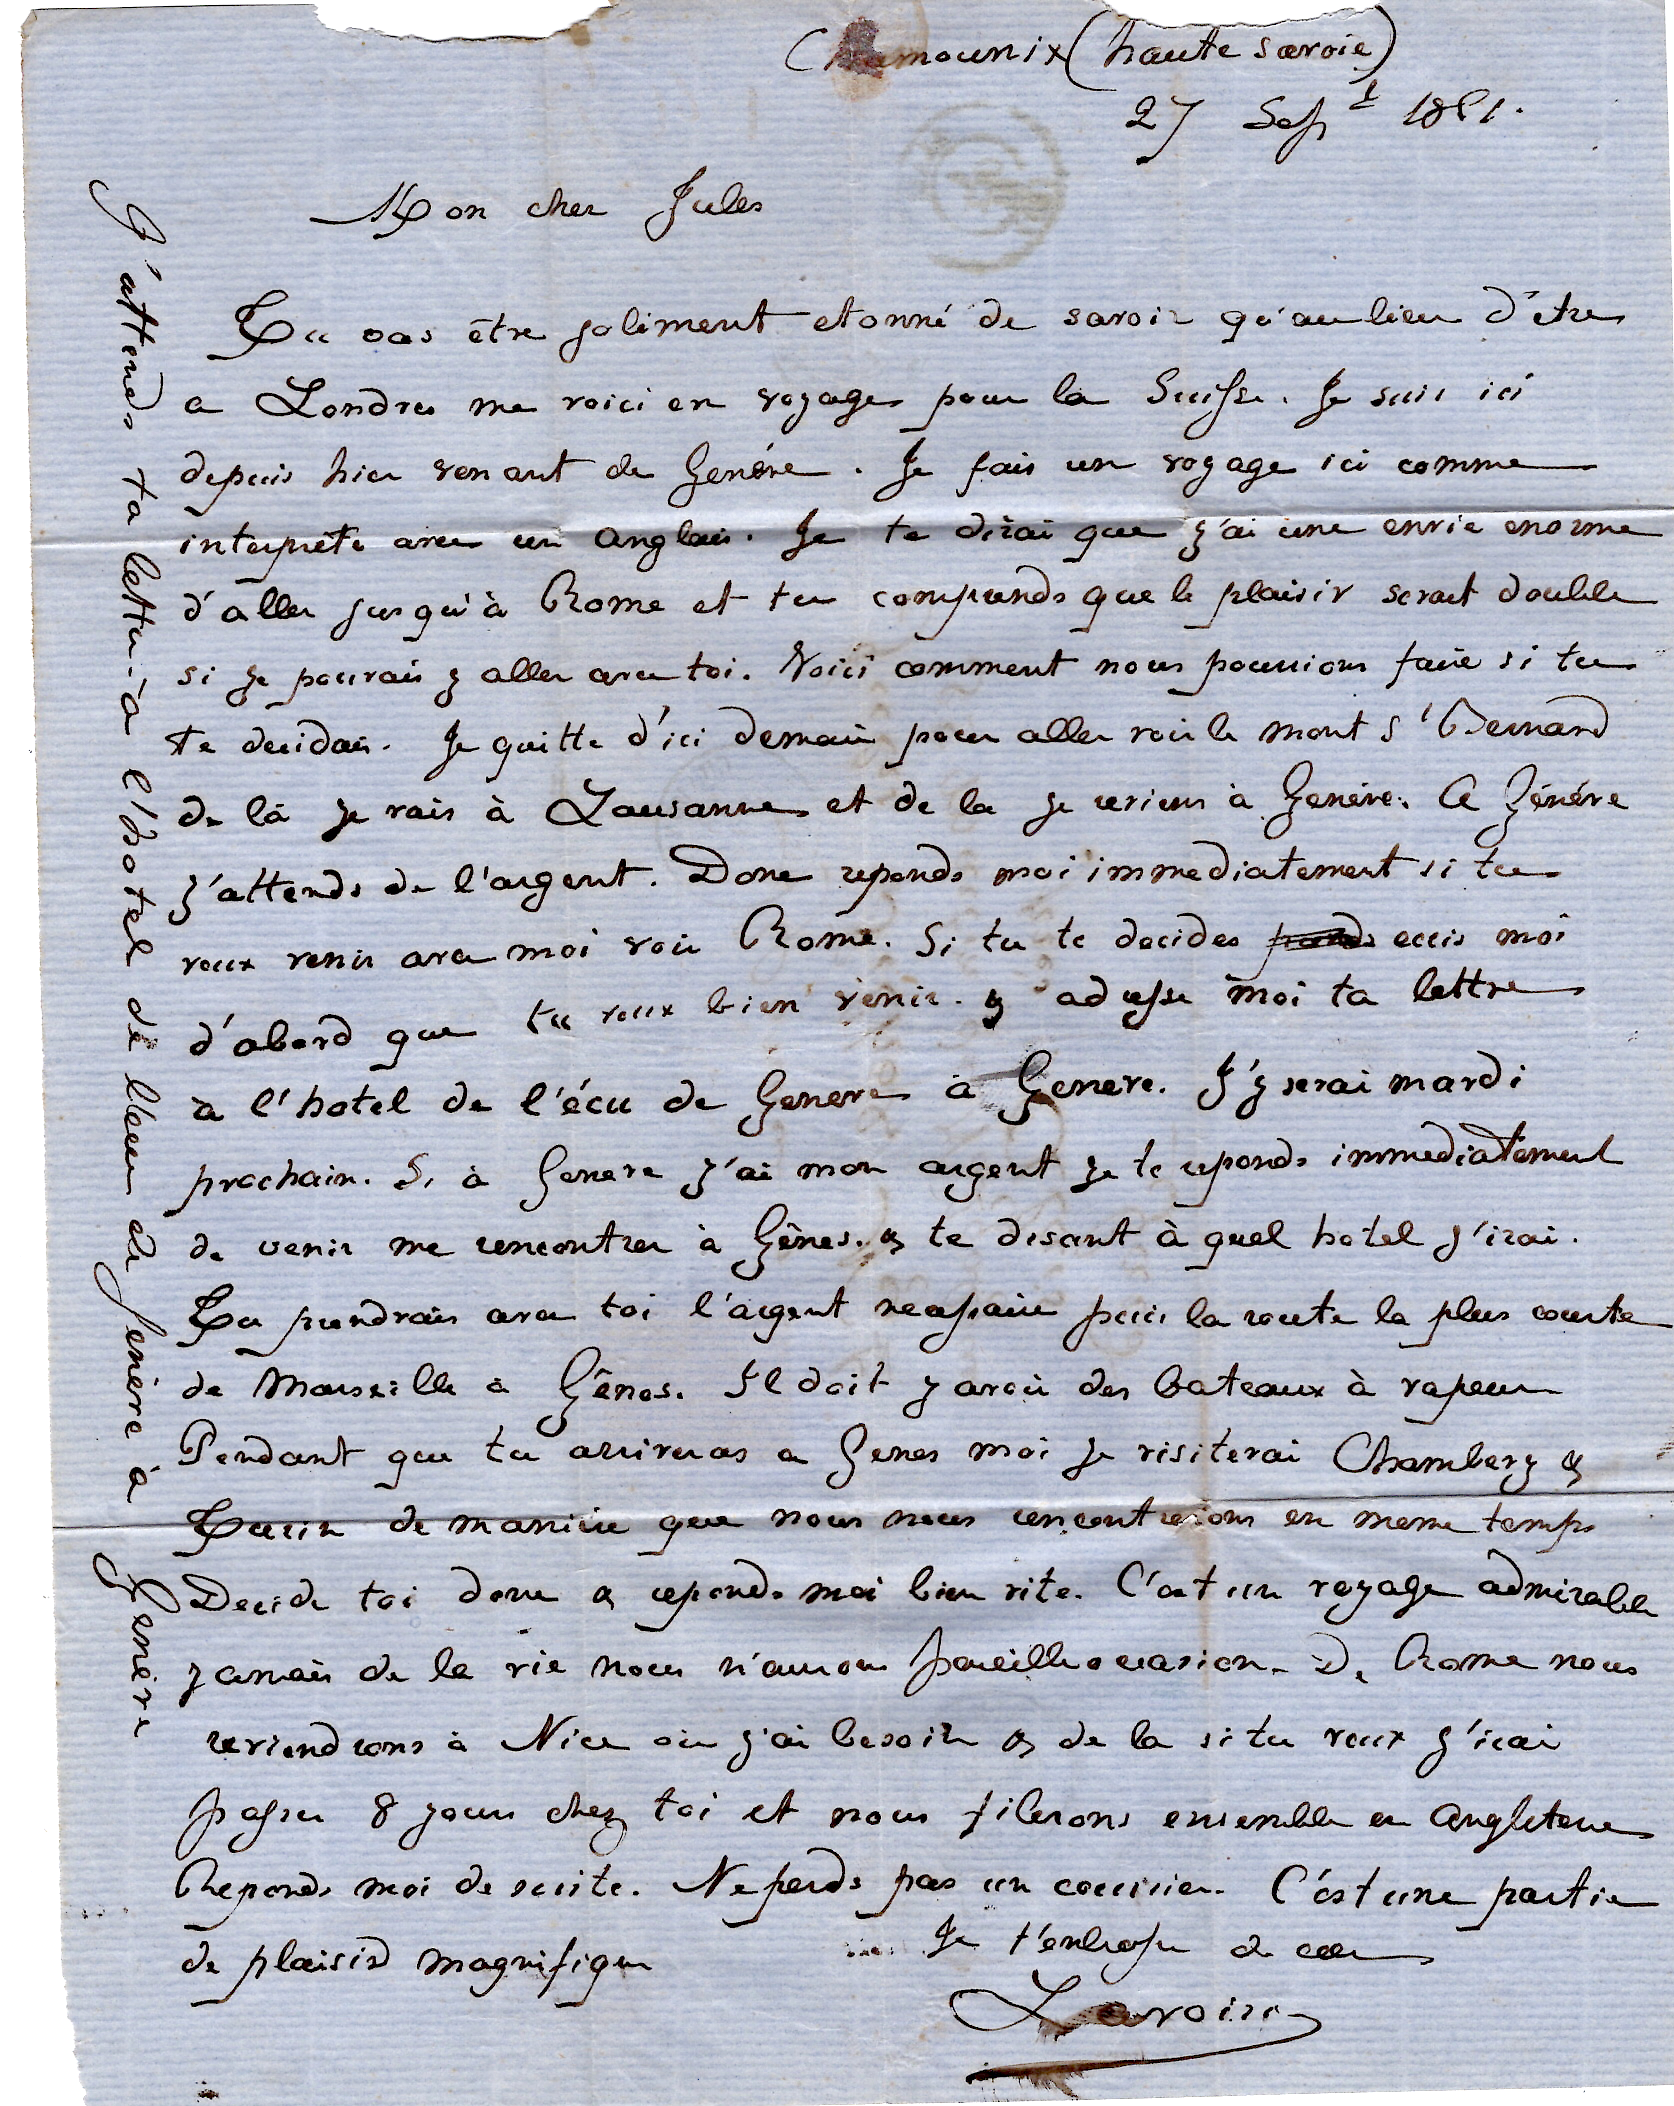 Chamounix (haute savoie)
27 Sept 1861.
Mon cher Jules
Tu vas être joliment etonné de savoir qu'au lieu d'être
a Londres me voici en voyage pour la Suisse. Je suis ici
depuis hier venant de Genéve. Je fais un voyage ici comme
interprète avec un anglais. Je te dirai que j'ai une envie enorme
d'aller jusqu'à Rome et tu comprends que le plaisir serait double
si je pourais y aller avec toi. Voici comment nous pourrions faire si tu
te decidais. Je quitte d'ici demain pour aller voir le mont St Bernard
de là je vais à Lausanne et de la je reviens à Genéve. A Généve
j'attends de l'argent. Donc reponds moi immediatement si tu
veux venir avec moi voir Rome. Si tu te decides ecris moi
d'abord que tu veux bien venir. & adresse moi ta lettre
à l'hotel de l'écu de Geneve à Geneve. J'y serai mardi
prochain. Si à Geneve j'ai mon argent je te reponds immediatement
de venir me rencontrer à Gênes. & te disant à quel hotel j'irai.
Tu prendrais avec toi l'argent necessaire puis la route la plus courte
de Marseille à Gênes. Il doit y avoir des bateaux à vapeur
Pendant que tu arriveras a Genes moi je visiterai Chambery &
Turin de maniere que nous nous rencontrerions en meme temps
Decide toi donc & reponds moi bien vite. C'est un voyage admirable
jamais de la vie nous n'aurons pareille occasion. De Rome nous
reviendrons à Nice où j'ai besoin & de la si tu veux j'irai
passer 8 jours chez toi et nous filerons ensemble en Angleterre
Reponds moi de suite. Ne perds pas un courrier. C'est une partie
de plaisir magnifique
Je t'embrasse de cœur
Lavoire
J'attends ta lettre à l'hotel de l'écu de Genéve à Genève